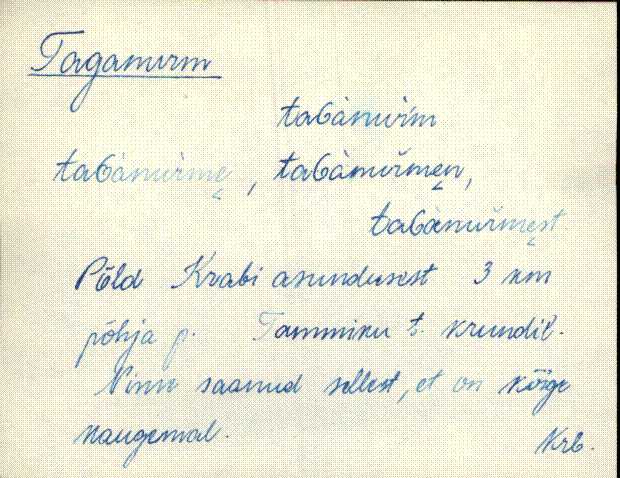 Taganurm
taGànuŕm
taGànuŕmę, taGànuŕmęn,
taGànuŕmęst
Põld Krabi asundusest 3 km
põhja p. Tammiku t. krundil.
Nime saanud sellest, et on kõige
kaugemal.
Krb.